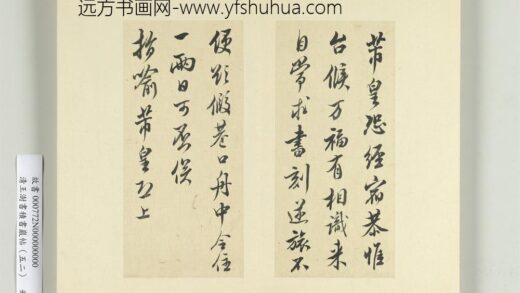 远方书画网-www.yfshuhua.com
芾皇恐經宿恭惟
台候万福有相識来
自常求書刻逆旅不
便欲假巷口舟中令住
一兩日可否俟
指喻芾皇恐上
故書 000772N000000000
清王澍書積書巖帖(五二)